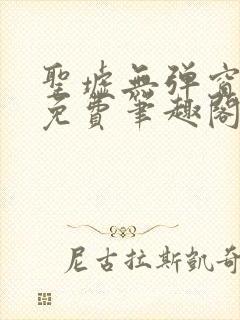 聖墟無彈窗
免費筆趣閣
尼古拉斯凱奇